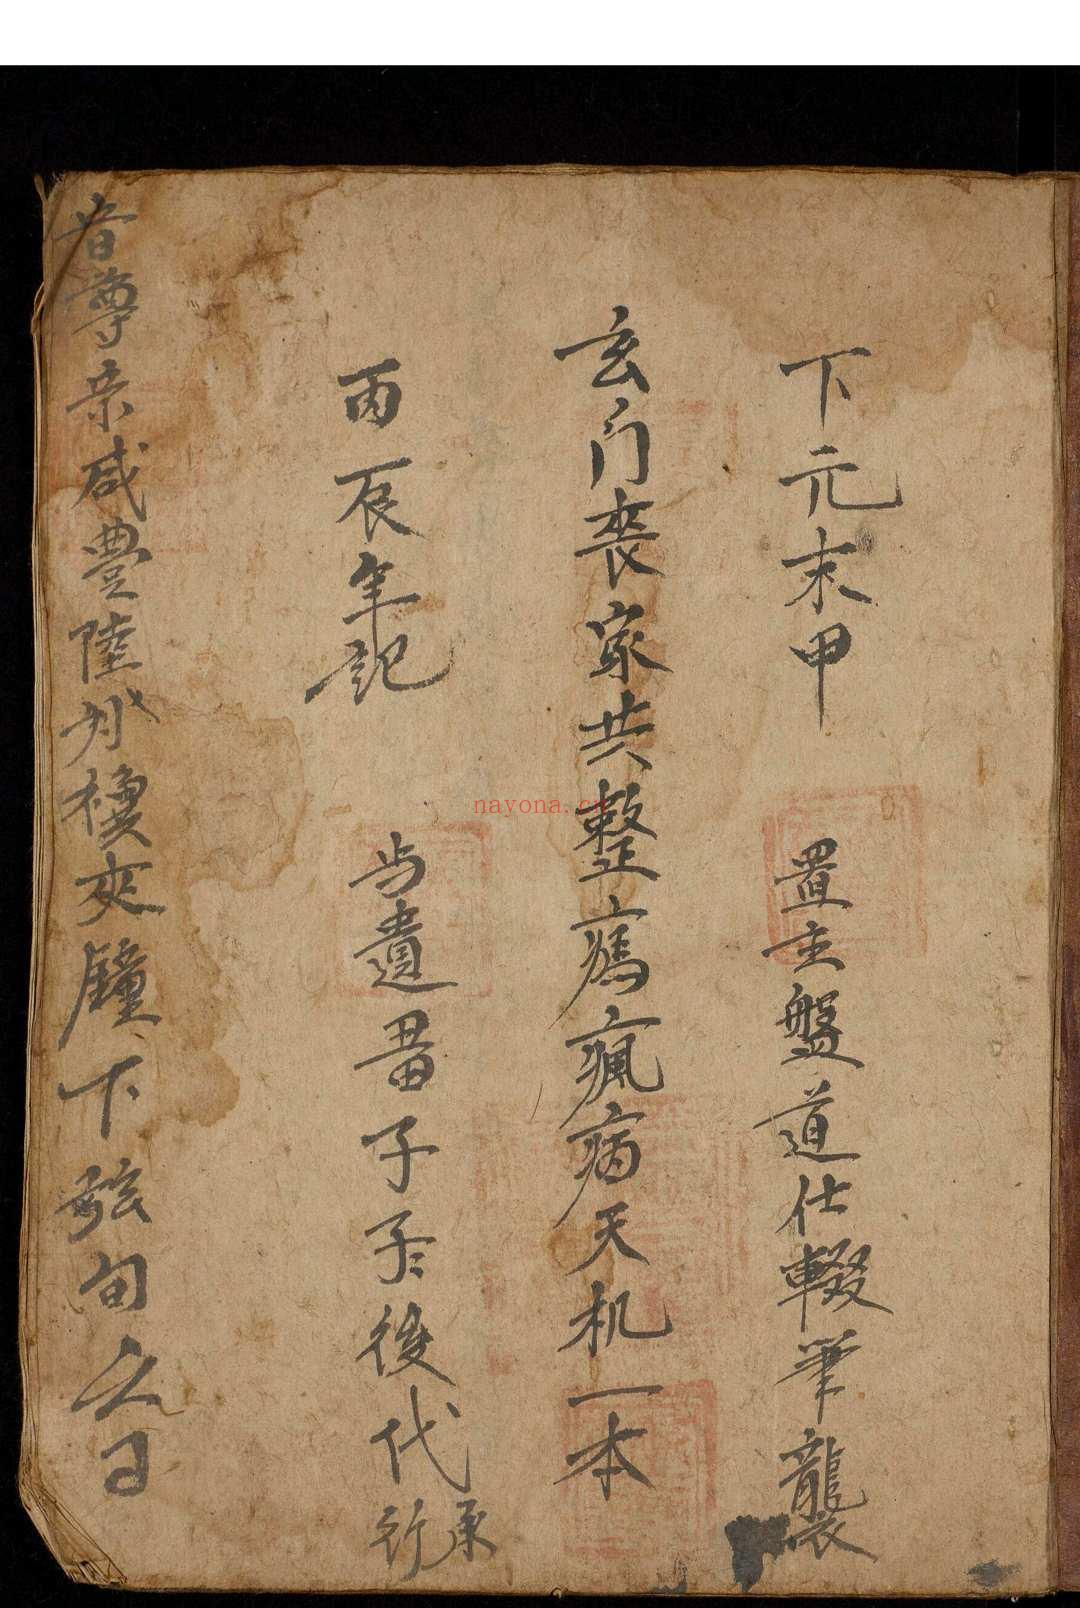 下元末甲 置主盤道仕輟筆襲
玄门喪家共整瘑瘋病天机一本
丙辰年記 遺畨子子後代承行
昔尊亲咸豐陸 夾鐘下弦旬之日
nayona.cn